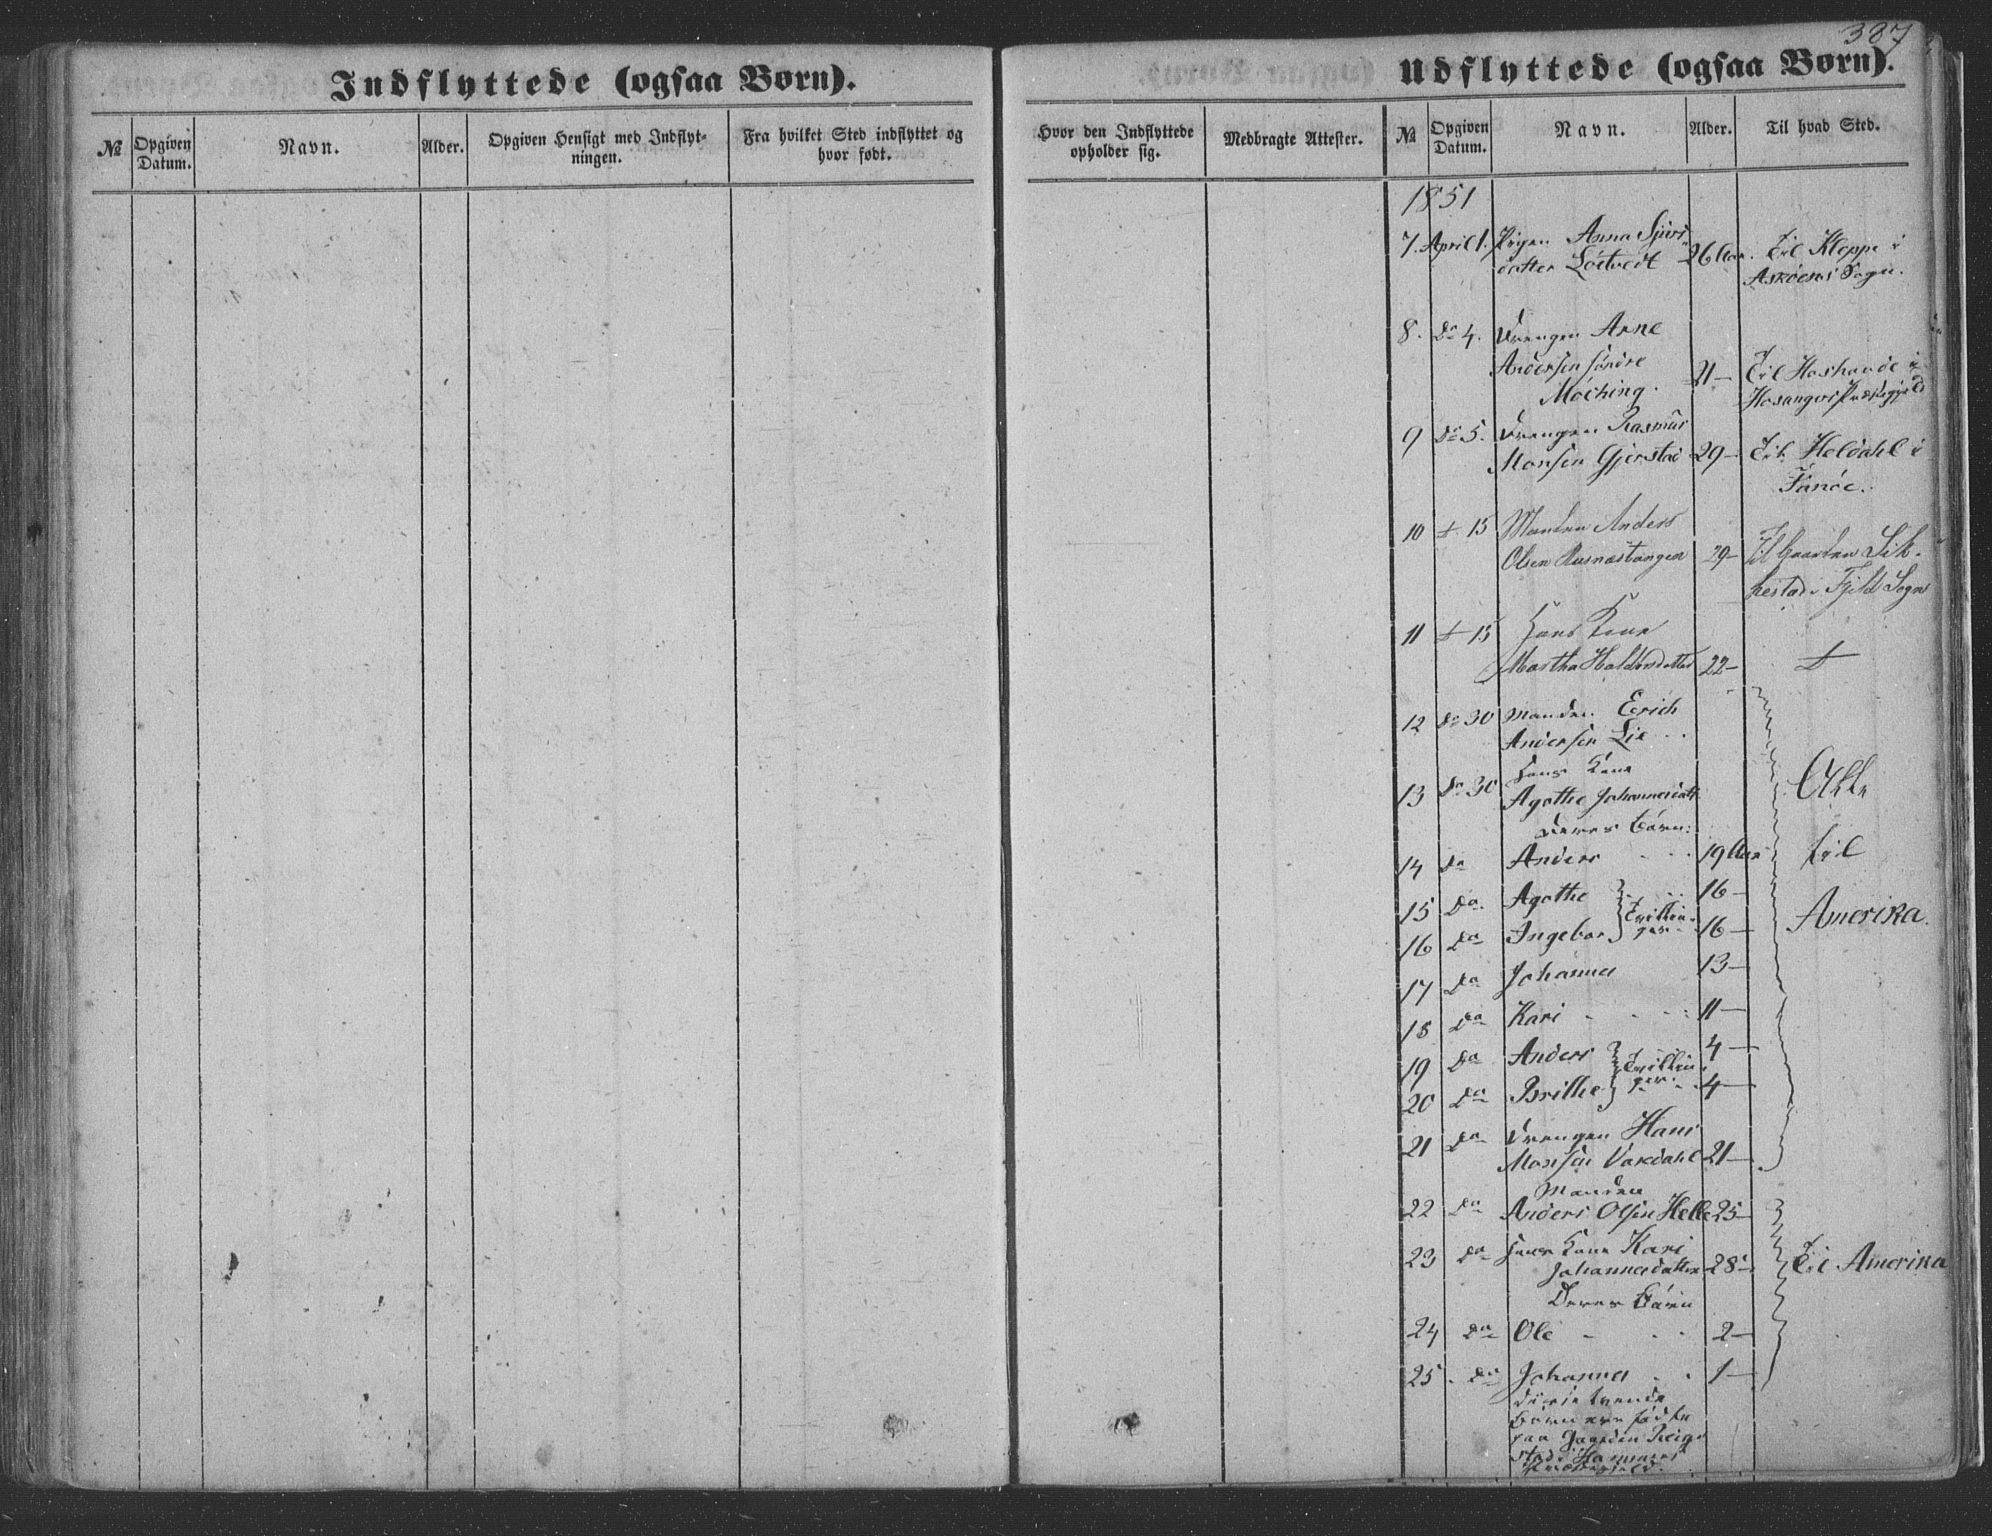 387
Indflyttede (ogsaa Børn).
Udflyttede (ogsaa Børn).
№ Opgiven Datum. Navn. Alder. Opgiven Hensigt med Indflyt-ningen. Fra hvilket Sted indflyttet og hvor født.
Hvor den Indflyttede opholder sig. Medbragte Attester. № Opgiven Datum. Navn. Alder. Til hvad Sted.
1851
7. April 1. Pigen Anna Sjurs
datter Løtvedt 26 Aar. Til Kleppe i
Askøens Sogn.
8. Do 4. Drengen Arne
Andersen søndre
Møching. 21 — Til
Hosanger Præstegjeld
9 Do 5. Drengen Rasmus
Monsen Gjerstad 29 — Til Holdahl i
Fanøe.
10 15 Manden Anders
Olsen Rusnæstangen 29 — Til Gaarden Lik-
kestad i Fjeld Sogn
11 15 Hans Kone
Martha Haldorsdatter 22 —
12 Do 30 Manden Erich
Andersen Lie
13 Do 30 Hans Kone
Agathe Johannesdatt.
Deres Børn:
Alle
14 Do Anders 19 Aar til
15 Do Agathe 16 —
Tvillin-
ger Amerika.
16 Do Ingebor 16 —
17 Do Johannes 13 —
18 Do Kari 11 —
19 Do Anders 4 —
Tvillin-
ger.
20 Do Brithe 4 —
21 Do Drengen Hans
Monsen Vaxdahl 21 —
Manden
22 Do Anders Olsen Helle 25 —
23 Do Hans Kone Kari
Johannesdatter 28 — Til Amerika
Deres Børn
24 Do Ole 2 —
25. Do Johannes 1 —
Disse tvende
Børn ere fødte
paa Gaarden
stad i Hammers
Præstegjeld.